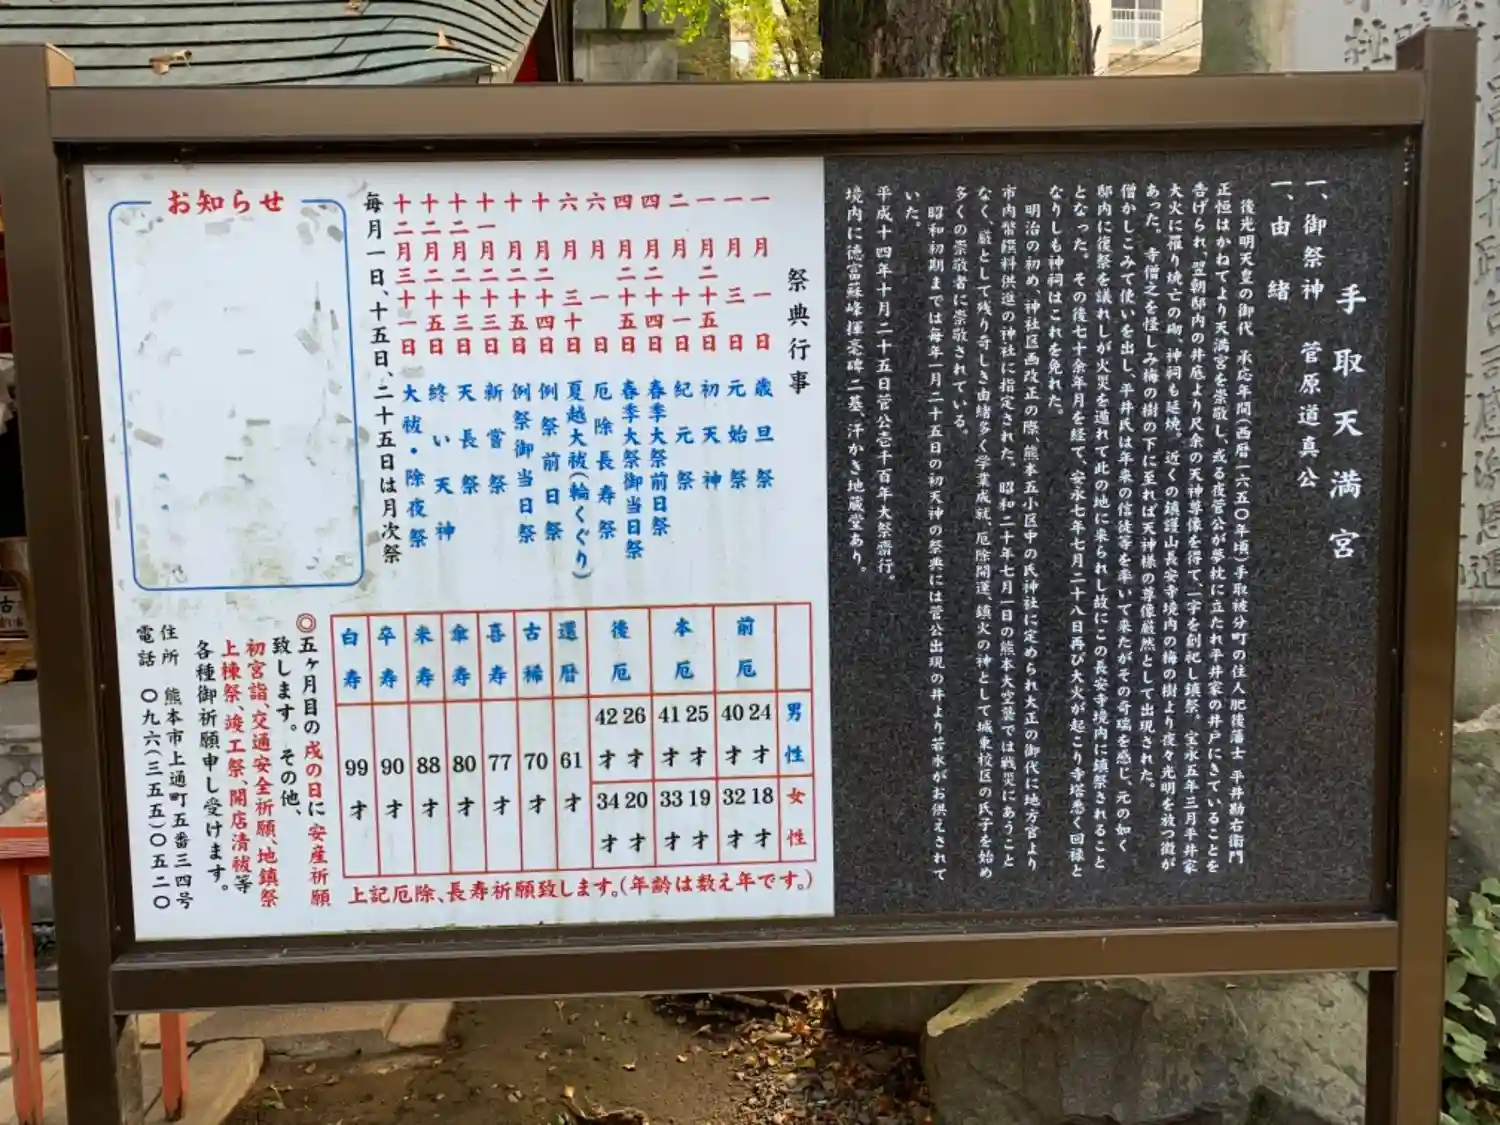 手取天満宮
一、御祭神　菅原道真公
一、由　緒
後光明天皇の御代　承応年間(西暦一六五〇年頃)手取被分町の住人肥後藩士　平井勘右衛門
正恒はかねてより天満宮を崇敬し、或る夜菅公が夢枕に立たれ平井家の井戸にきていることを
告げられ、翌朝邸内の井底より尺余の天神尊像を得て、一宇を創祀し鎮祭。宝永五年三月平井家
大火に罹り焼亡の砌、神祠も延焼。近くの鎮護山長安寺境内の梅の樹より夜々光明を放つ徴が
あった。寺僧之を怪しみ梅の樹の下に至れば天神様の尊像厳然として出現された。
僧かしこみて使いを出し、平井氏は年来の信徒等を率いて来たがその奇瑞を感じ、元の如く
邸内に復祭を議れしが火災を遁れて此の地に来られし故にこの長安寺境内に鎮祭されること
となった。その後七十余年月を経て、安永七年七月二十八日再び大火が起こり寺塔悉く回禄と
なりしも神祠はこれを免れた。
明治の初め、神社区画改正の際、熊本五小区中の氏神社に定められ大正の御代に地方官より
市内幣饌料供進の神社に指定された。昭和二十年七月一日の熊本大空襲では戦災にあうこと
なく、厳として残り奇しき由緒多く学業成就、厄除開運、鎮火の神として城東校区の氏子を始め
多くの崇敬者に崇敬されている。
昭和初期までは毎年一月二十五日の初天神の祭典には菅公出現の井より若水がお供えされて
いた。
平成十四年十月二十五日菅公壱千百年大祭斎行。
境内に徳富蘇峰揮毫碑二基、汗かき地蔵堂あり。
祭典行事
一月一日　歳旦祭
一月三日　元始祭
一月二十五日　初天神
二月十一日　紀元祭
四月二十四日　春季大祭前日祭
四月二十五日　春季大祭御当日祭
六月一日　厄除長寿祭
六月三十日　夏越大祓(輪くぐり)
十月二十四日　例祭前日祭
十月二十五日　例祭御当日祭
十一月二十三日　新嘗祭
十二月二十三日　天長祭
十二月二十五日　終い天神
十二月三十一日　大祓・除夜祭
毎月一日、十五日、二十五日は月次祭
お知らせ
前厄　本厄　後厄　還暦　古稀　喜寿　傘寿　米寿　卒寿　白寿
男性　24才　40才　25才　41才　26才　42才
女性　18才　32才　19才　33才　20才　34才
61才　70才　77才　80才　88才　90才　99才
上記厄除、長寿祈願致します。(年齢は数え年です。)
◎五ヶ月目の戌の日に安産祈願
致します。その他、
初宮詣、交通安全祈願、地鎮祭
上棟祭、竣工祭、開店清祓等
各種御祈願申し受けます。
住所　熊本市上通町五番三四号
電話　〇九六(三五五)〇五二〇